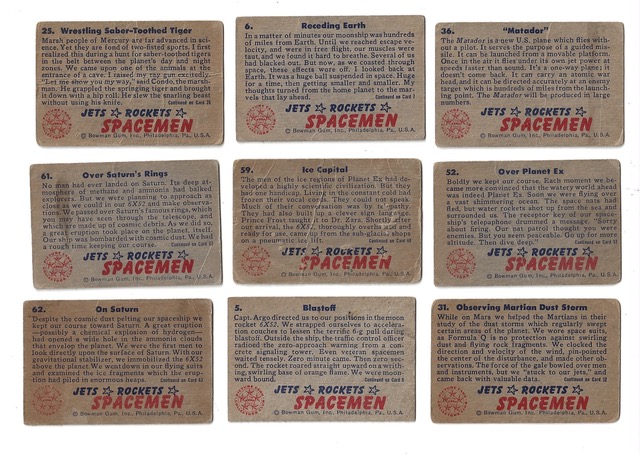 25. Wrestling Saber-Toothed Tiger
Marsh people of Mercury are far advanced in sci-
ence. Yet they are fond of two-fisted sports. I first
realized this during a hunt for sabertooth tigers
in the belt between the planet's day and night
zones. We came upon one of the animals at the
entrance of a cave. I raised my ray gun excitedly.
"Let me show you my way," said Condo, the marsh-
man. He grappled the springing tiger and brought
it down with a hip roll. He slew the snarling beast
without using his knife.
Continued on Card 26
JETS ☆ ROCKETS ☆
SPACEMEN
© Bowman Gum, Inc., Philadelphia, Pa., U.S.A.
6.
Receding Earth
In a matter of minutes our moonship was hundreds
of miles from Earth. Until we reached escape ve-
locity, and were in free flight, our muscles were
taut, and we found it hard to breathe. Several of us
had blacked out. But now, as we coasted through
space, these effects wore off. I looked back at
Earth. It was a huge ball suspended in space. Huge
for a time, then getting smaller and smaller. My
thoughts turned from the home planet to the mar-
vels that lay ahead.
Continued on Card 7
JETS ☆ ROCKETS ☆
SPACEMEN
© Bowman Gum, Inc., Philadelphia, Pa., U.S.A.
36.
"Matador"
The Matador is a new U.S. plane which flies with-
out a pilot. It serves the purpose of a guided mis-
sile. It can be launched from a movable platform.
Once in the air it flies under its own jet power at
speeds faster than sound. It's a one-way plane; it
doesn't come back. It can carry an atomic war
head, and it can be directed accurately at an enemy
target which is hundreds of miles from the launch-
ing place. The Matador will be produced in large
numbers.
JETS ☆ ROCKETS ☆
SPACEMEN
© Bowman Gum, Inc., Philadelphia, Pa., U.S.A.
61.
Over Saturn's Rings
No man had ever landed on Saturn. Its deep at-
mosphere of methane and ammonia had balked
explorers. But we were planning to approach as
close as we could in our SX52 and make observa-
tions. We passed over Saturn's famous rings, which
you may have seen through the telescope, and
which are made up of cosmic debris. As we did so,
a great eruption took place on the planet, itself.
Our ship was bombarded with cosmic dust. We had
a rough time keeping our course.
Continued on Card 62
JETS ☆ ROCKETS ☆
SPACEMEN
© Bowman Gum, Inc., Philadelphia, Pa., U.S.A.
59.
Ice Capital
The men of the ice regions of Planet Ex had de-
veloped a highly scientific civilization. But they
had one handicap. Living in the constant cold had
frozen their vocal cords. They could not speak.
Much of their conversation was by
They had also built up a clever sign language.
Prince Frost taught it to Dr. Zara. Shortly after
our arrival, the SX52, thoroughly overhauled and
ready for use, came up from the sub-glacial shops
on a pneumatic ice lift.
JETS ☆ ROCKETS ☆
SPACEMEN
© Bowman Gum, Inc., Philadelphia, Pa., U.S.A.
52.
Over Planet Ex
Boldly we kept our course. Each moment we be-
came more convinced that the watery world ahead
was indeed Planet Ex. Soon we were flying over
a vast shimmering ocean. The space mists had
fled, but water rockets shot up from the sea and
surrounded us. The receptor key of our space-
ship's telephone drummed a message. "Sorry
about firing. Our net patrol thought you were
enemies. But you seem peaceable. Go up for more
altitude. Then dive deep."
JETS ☆ ROCKETS ☆
SPACEMEN
© Bowman Gum, Inc., Philadelphia, Pa., U.S.A.
62.
On Saturn
Despite the cosmic dust pelting our spaceship we
kept our course toward Saturn. A great eruption
—possibly a chemical explosion of hydrogen—
had opened a wide hole in the ammonia clouds
that envelop the planet. We were the first men to
look directly upon the surface of Saturn. With our
gravitational stabilizer, we immobilized the SX52
above the planet. We went down in our flying suits
and examined the ice fragments which the erup-
tion had piled in enormous heaps.
JETS ☆ ROCKETS ☆
SPACEMEN
© Bowman Gum, Inc., Philadelphia, Pa., U.S.A.
5.
Blastoff
Capt. Argo directed us to our positions in the moon
rocket SX52. We strapped ourselves to accelera-
tion couches to lessen the terrific 6-g pull during
blastoff. Outside the ship, the traffic control officer
radioed the zero-approach warning from a con-
crete signaling tower. Even veteran spacemen
waited tensely. Zero minute came. Then zero sec-
ond. The rocket roared straight upward on a writh-
ing, swirling base of orange flame. We were moon-
ward bound.
Continued on Card 6
JETS ☆ ROCKETS ☆
SPACEMEN
© Bowman Gum, Inc., Philadelphia, Pa., U.S.A.
31. Observing Martian Dust Storm
While on Mars we helped the Martians in their
study of the dust storms which regularly swept
certain areas of the planet. We wore space suits,
as Formula Q is no protection against swirling
dust and flying rock fragments. We clocked the
direction and velocity of the wind, pin-pointed
the center of the disturbance, and made other ob-
servations. The force of the gale bowled over men
and instruments, but we "stuck to our jets," and
came back with valuable data.
JETS ☆ ROCKETS ☆
SPACEMEN
© Bowman Gum, Inc., Philadelphia, Pa., U.S.A.